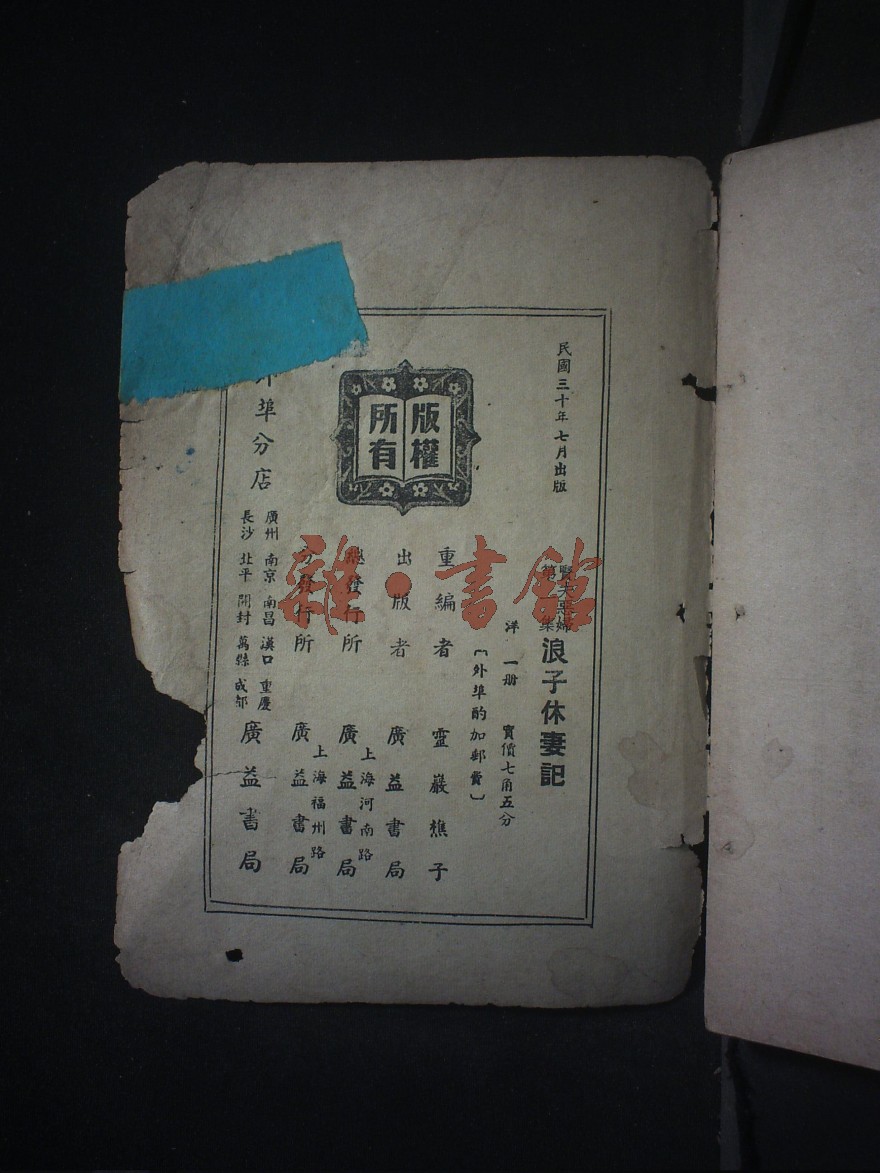 民國三十年七月出版
賢夫惡婦
第 集
浪子休妻記
洋 一册 實價七角五分
〔外埠酌加郵費〕
重編者 靈巖樵子
版權
所有
出版者 廣益書局
總發行所 上海河南路 廣益書局
分發行所 上海福州路 廣益書局
外埠分店 廣州 南京 南昌 漢口 重慶
長沙 北平 開封 萬縣 成都 廣益書局
雜·書館